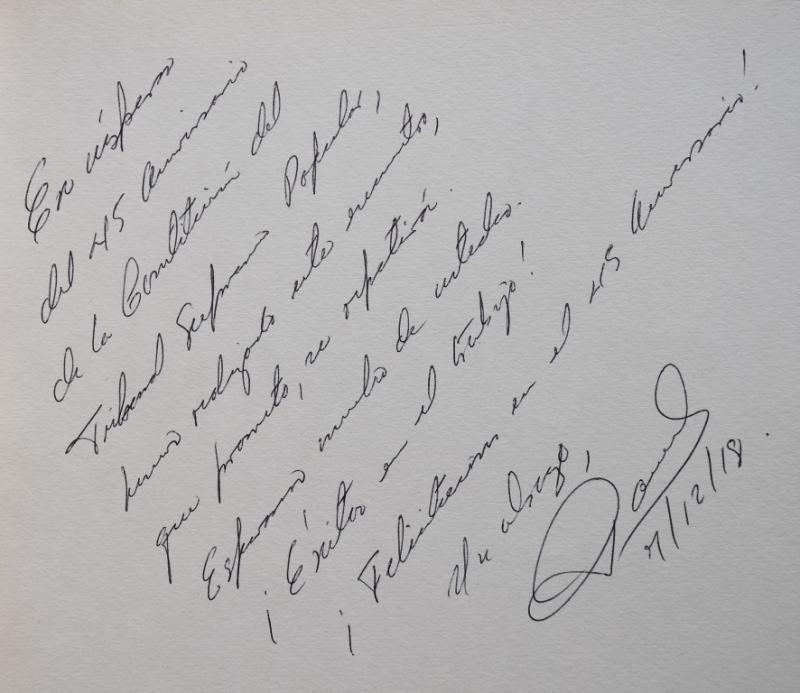 En víspera
del 45 aniversario
de la Constitución del
Tribunal Supremo Popular,
hemos realizado este encuentro,
que prometo, se repetirá.
Esperamos mucho de ustedes.
¡Éxitos en el trabajo!
¡Felicitaciones en el 45 aniversario!
Un abrazo,
7/12/18.